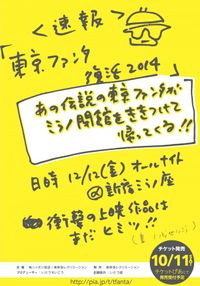 ＜速報＞
「東京ファンタ
復活2014」
あの伝説の東京ファンタが
ミラノ閉館をききつけて
帰ってくる!!
日時 12/12(金)オールナイト
@新宿ミラノ座
衝撃の上映作品は
まだヒミツ!!
チケット発売
10/11(土)
チケットぴあにて
http://pia.jp/t/tfanta/